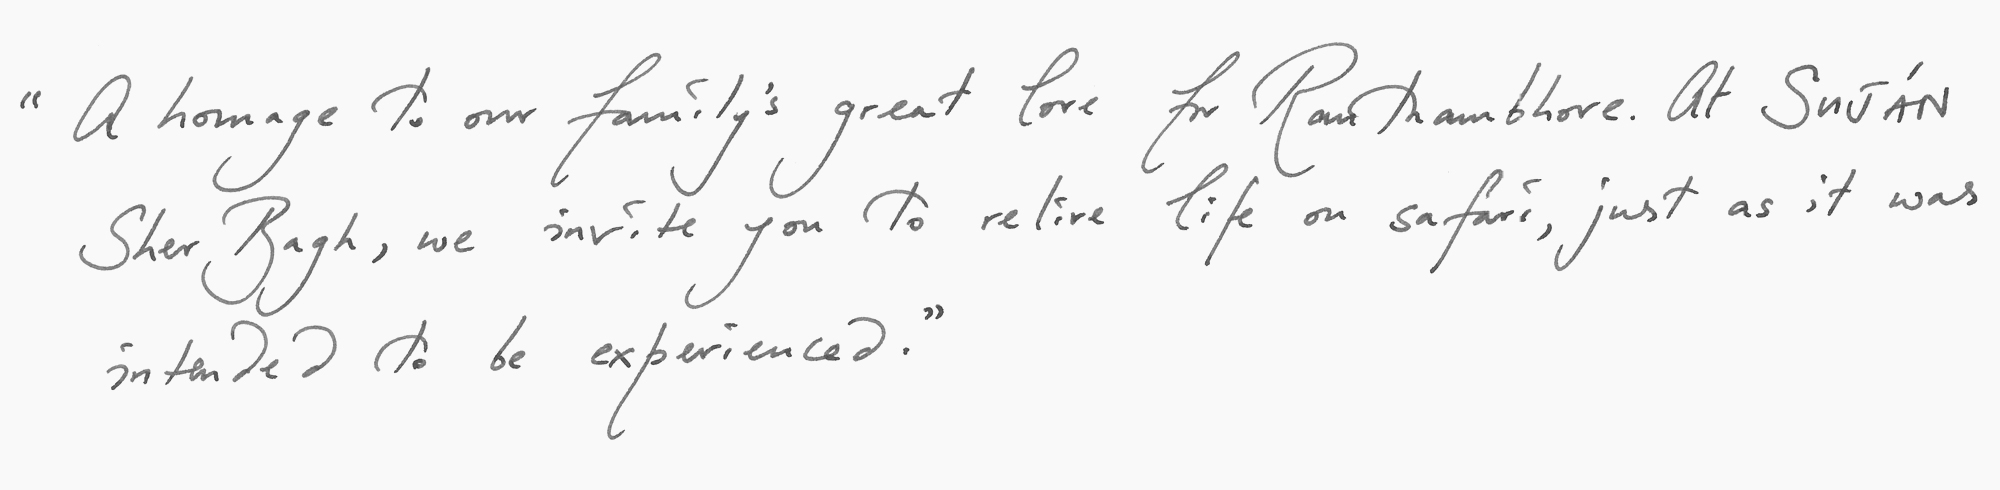 “ A homage to our family's great love for Ranthambhore. At SUJÁN
Sher Bagh, we invite you to relive life on safari, just as it was
intended to be experienced.”